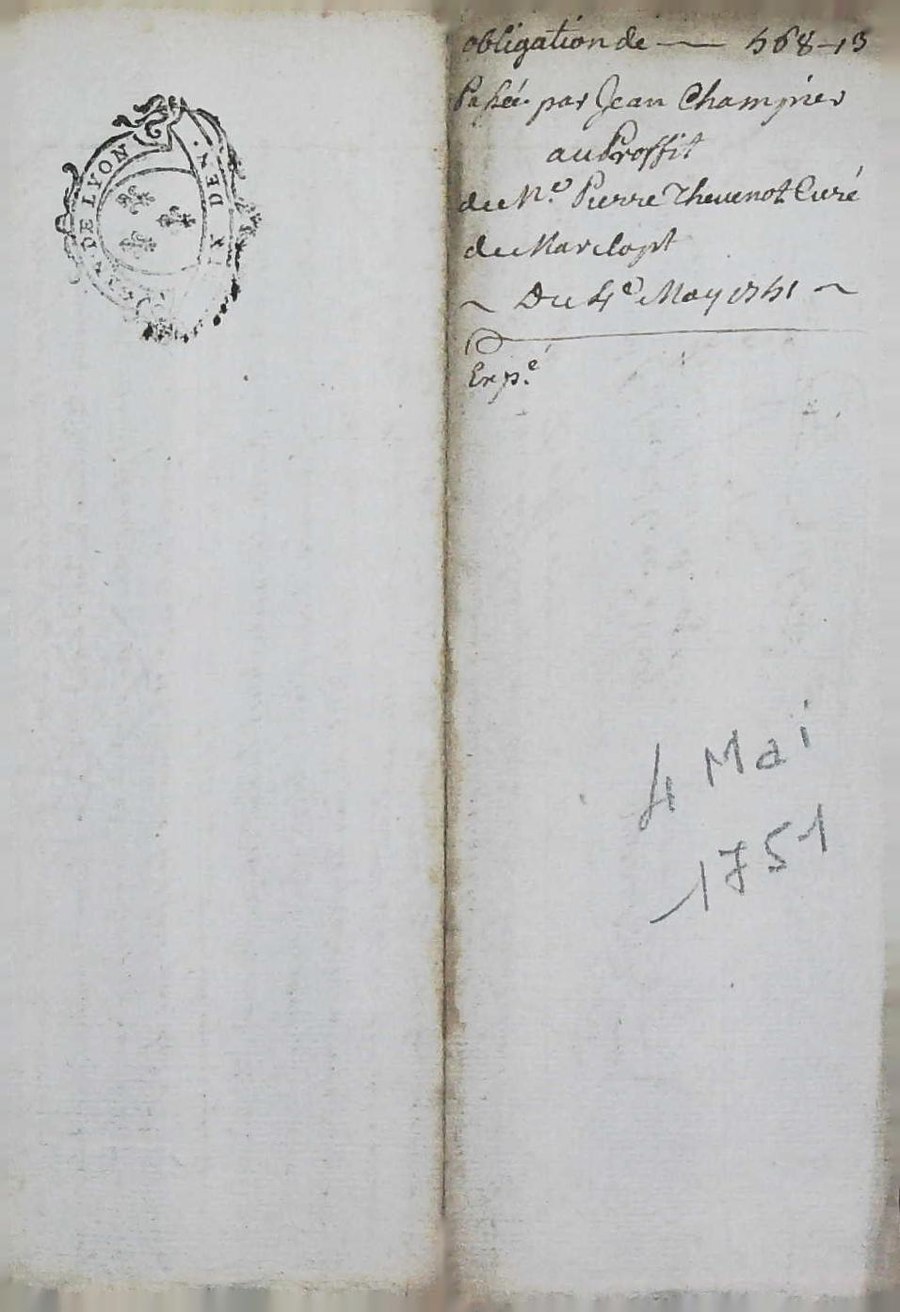 GEN. DE LYON
IX DEN.
obligation de — 568-13
Passée par Jean Champier
au Proffit
de M.e Pierre Thevenot Curé
de Marclopt
~ Du 4e May 1751 ~
Exp.é
4 Mai
1751